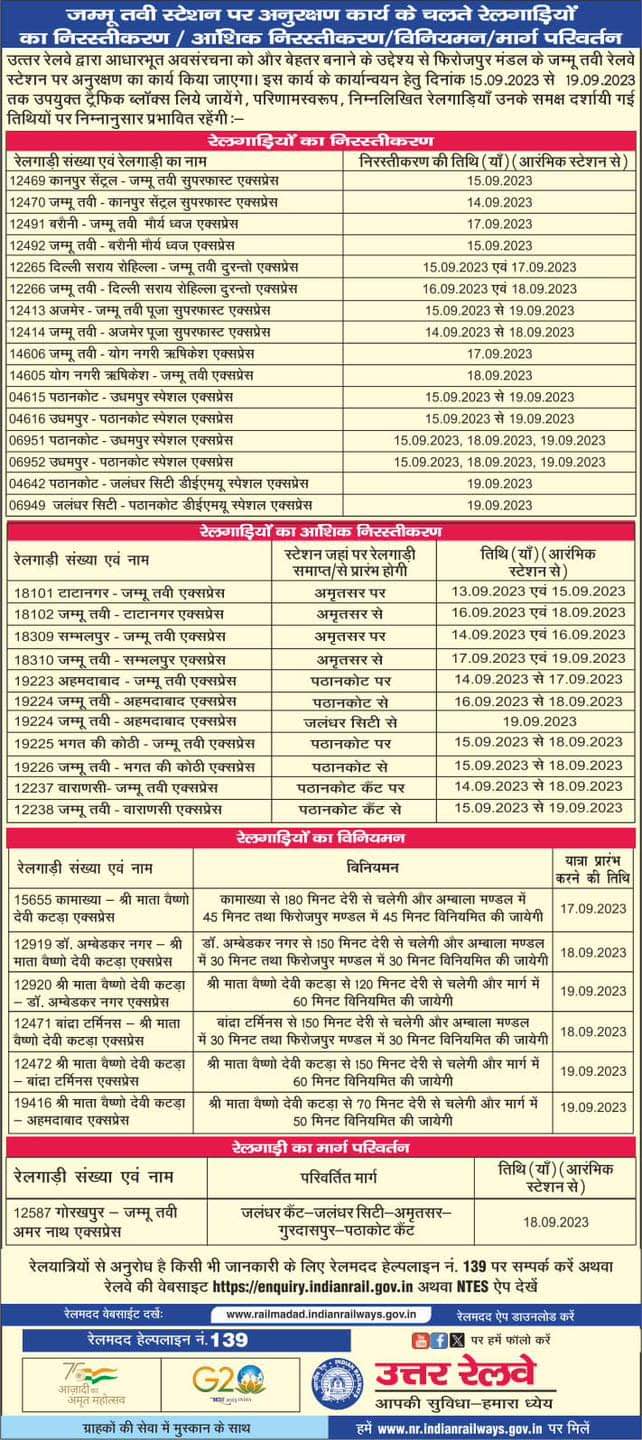 जम्मू तवी स्टेशन पर अनुरक्षण कार्य के चलते रेलगाड़ियों
का निरस्तीकरण / आंशिक निरस्तीकरण/विनियमन/मार्ग परिवर्तन
उत्तर रेलवे द्वारा आधारभूत अवसंरचना को और बेहतर बनाने के उद्देश्य से फिरोजपुर मंडल के जम्मू तवी रेलवे
स्टेशन पर अनुरक्षण का कार्य किया जाएगा। इस कार्य के कार्यान्वयन हेतु दिनांक 15.09.2023 से 19.09.2023
तक उपयुक्त ट्रैफिक ब्लॉक्स लिये जायेंगे , परिणामस्वरूप, निम्नलिखित रेलगाड़ियाँ उनके समक्ष दर्शायी गई
तिथियों पर निम्नानुसार प्रभावित रहेंगी :–
रेलगाड़ियों का निरस्तीकरण
रेलगाड़ी संख्या एवं रेलगाड़ी का नाम निरस्तीकरण की तिथि (याँ) (आरंभिक स्टेशन से)
12469 कानपुर सेंट्रल - जम्मू तवी सुपरफास्ट एक्सप्रेस 15.09.2023
12470 जम्मू तवी - कानपुर सेंट्रल सुपरफास्ट एक्सप्रेस 14.09.2023
12491 बरौनी - जम्मू तवी मौर्य ध्वज एक्सप्रेस 17.09.2023
12492 जम्मू तवी - बरौनी मौर्य ध्वज एक्सप्रेस 15.09.2023
12265 दिल्ली सराय रोहिल्ला - जम्मू तवी दुरन्तो एक्सप्रेस 15.09.2023 एवं 17.09.2023
12266 जम्मू तवी - दिल्ली सराय रोहिल्ला दुरन्तो एक्सप्रेस 16.09.2023 एवं 18.09.2023
12413 अजमेर - जम्मू तवी पूजा सुपरफास्ट एक्सप्रेस 15.09.2023 से 19.09.2023
12414 जम्मू तवी - अजमेर पूजा सुपरफास्ट एक्सप्रेस 14.09.2023 से 18.09.2023
14606 जम्मू तवी - योग नगरी ऋषिकेश एक्सप्रेस 17.09.2023
14605 योग नगरी ऋषिकेश - जम्मू तवी एक्सप्रेस 18.09.2023
04615 पठानकोट - उधमपुर स्पेशल एक्सप्रेस 15.09.2023 से 19.09.2023
04616 उधमपुर - पठानकोट स्पेशल एक्सप्रेस 15.09.2023 से 19.09.2023
06951 पठानकोट - उधमपुर स्पेशल एक्सप्रेस 15.09.2023, 18.09.2023, 19.09.2023
06952 उधमपुर - पठानकोट स्पेशल एक्सप्रेस 15.09.2023, 18.09.2023, 19.09.2023
04642 पठानकोट - जलंधर सिटी डीईएमयू स्पेशल एक्सप्रेस 19.09.2023
06949 जलंधर सिटी - पठानकोट डीईएमयू स्पेशल एक्सप्रेस 19.09.2023
रेलगाड़ियों का आंशिक निरस्तीकरण
रेलगाड़ी संख्या एवं नाम स्टेशन जहां पर रेलगाड़ी समाप्त/से प्रारंभ होगी तिथि (याँ) (आरंभिक स्टेशन से)
18101 टाटानगर - जम्मू तवी एक्सप्रेस अमृतसर पर 13.09.2023 एवं 15.09.2023
18102 जम्मू तवी - टाटानगर एक्सप्रेस अमृतसर से 16.09.2023 एवं 18.09.2023
18309 सम्भलपुर - जम्मू तवी एक्सप्रेस अमृतसर पर 14.09.2023 एवं 16.09.2023
18310 जम्मू तवी - सम्भलपुर एक्सप्रेस अमृतसर से 17.09.2023 एवं 19.09.2023
19223 अहमदाबाद - जम्मू तवी एक्सप्रेस पठानकोट पर 14.09.2023 से 17.09.2023
19224 जम्मू तवी - अहमदाबाद एक्सप्रेस पठानकोट से 16.09.2023 से 18.09.2023
19224 जम्मू तवी - अहमदाबाद एक्सप्रेस जलंधर सिटी से 19.09.2023
19225 भगत की कोठी - जम्मू तवी एक्सप्रेस पठानकोट पर 15.09.2023 से 18.09.2023
19226 जम्मू तवी - भगत की कोठी एक्सप्रेस पठानकोट से 15.09.2023 से 18.09.2023
12237 वाराणसी- जम्मू तवी एक्सप्रेस पठानकोट कैंट पर 14.09.2023 से 18.09.2023
12238 जम्मू तवी - वाराणसी एक्सप्रेस पठानकोट कैंट से 15.09.2023 से 19.09.2023
रेलगाड़ियों का विनियमन
रेलगाड़ी संख्या एवं नाम विनियमन यात्रा प्रारंभ करने की तिथि
15655 कामाख्या – श्री माता वैष्णो कामाख्या से 180 मिनट देरी से चलेगी और अम्बाला मण्डल में
देवी कटड़ा एक्सप्रेस 45 मिनट तथा फिरोजपुर मण्डल में 45 मिनट विनियमित की जायेगी 17.09.2023
12919 डॉ. अम्बेडकर नगर – श्री डॉ. अम्बेडकर नगर से 150 मिनट देरी से चलेगी और अम्बाला मण्डल
माता वैष्णो देवी कटड़ा एक्सप्रेस में 30 मिनट तथा फिरोजपुर मण्डल में 30 मिनट विनियमित की जायेगी 18.09.2023
12920 श्री माता वैष्णो देवी कटड़ा श्री माता वैष्णो देवी कटड़ा से 120 मिनट देरी से चलेगी और मार्ग में
– डॉ. अम्बेडकर नगर एक्सप्रेस 60 मिनट विनियमित की जायेगी 19.09.2023
12471 बांद्रा टर्मिनस – श्री माता बांद्रा टर्मिनस से 150 मिनट देरी से चलेगी और अम्बाला मण्डल
वैष्णो देवी कटड़ा एक्सप्रेस में 30 मिनट तथा फिरोजपुर मण्डल में 30 मिनट विनियमित की जायेगी 18.09.2023
12472 श्री माता वैष्णो देवी कटड़ा श्री माता वैष्णो देवी कटड़ा से 150 मिनट देरी से चलेगी और मार्ग में
– बांद्रा टर्मिनस एक्सप्रेस 60 मिनट विनियमित की जायेगी 19.09.2023
19416 श्री माता वैष्णो देवी कटड़ा श्री माता वैष्णो देवी कटड़ा से 70 मिनट देरी से चलेगी और मार्ग में
– अहमदाबाद एक्सप्रेस 50 मिनट विनियमित की जायेगी 19.09.2023
रेलगाड़ी का मार्ग परिवर्तन
रेलगाड़ी संख्या एवं नाम परिवर्तित मार्ग तिथि (याँ) (आरंभिक स्टेशन से)
12587 गोरखपुर – जम्मू तवी जलंधर कैंट–जलंधर सिटी–अमृतसर–
अमर नाथ एक्सप्रेस गुरदासपुर–पठाकोट कैंट 18.09.2023
रेलयात्रियों से अनुरोध है किसी भी जानकारी के लिए रेलमदद हेल्पलाइन नं. 139 पर सम्पर्क करें अथवा
रेलवे की वेबसाइट https://enquiry.indianrail.gov.in अथवा NTES ऐप देखें
रेलमदद वेबसाईट देखेंः www.railmadad.indianrailways.gov.in रेलमदद ऐप डाउनलोड करें
रेलमदद हेल्पलाइन नं. 139 पर हमें फॉलो करें
आज़ादी का
अमृत महोत्सव
G20
उत्तर रेलवे
आपकी सुविधा–हमारा ध्येय
ग्राहकों की सेवा में मुस्कान के साथ हमें www.nr.indianrailways.gov.in पर मिलें